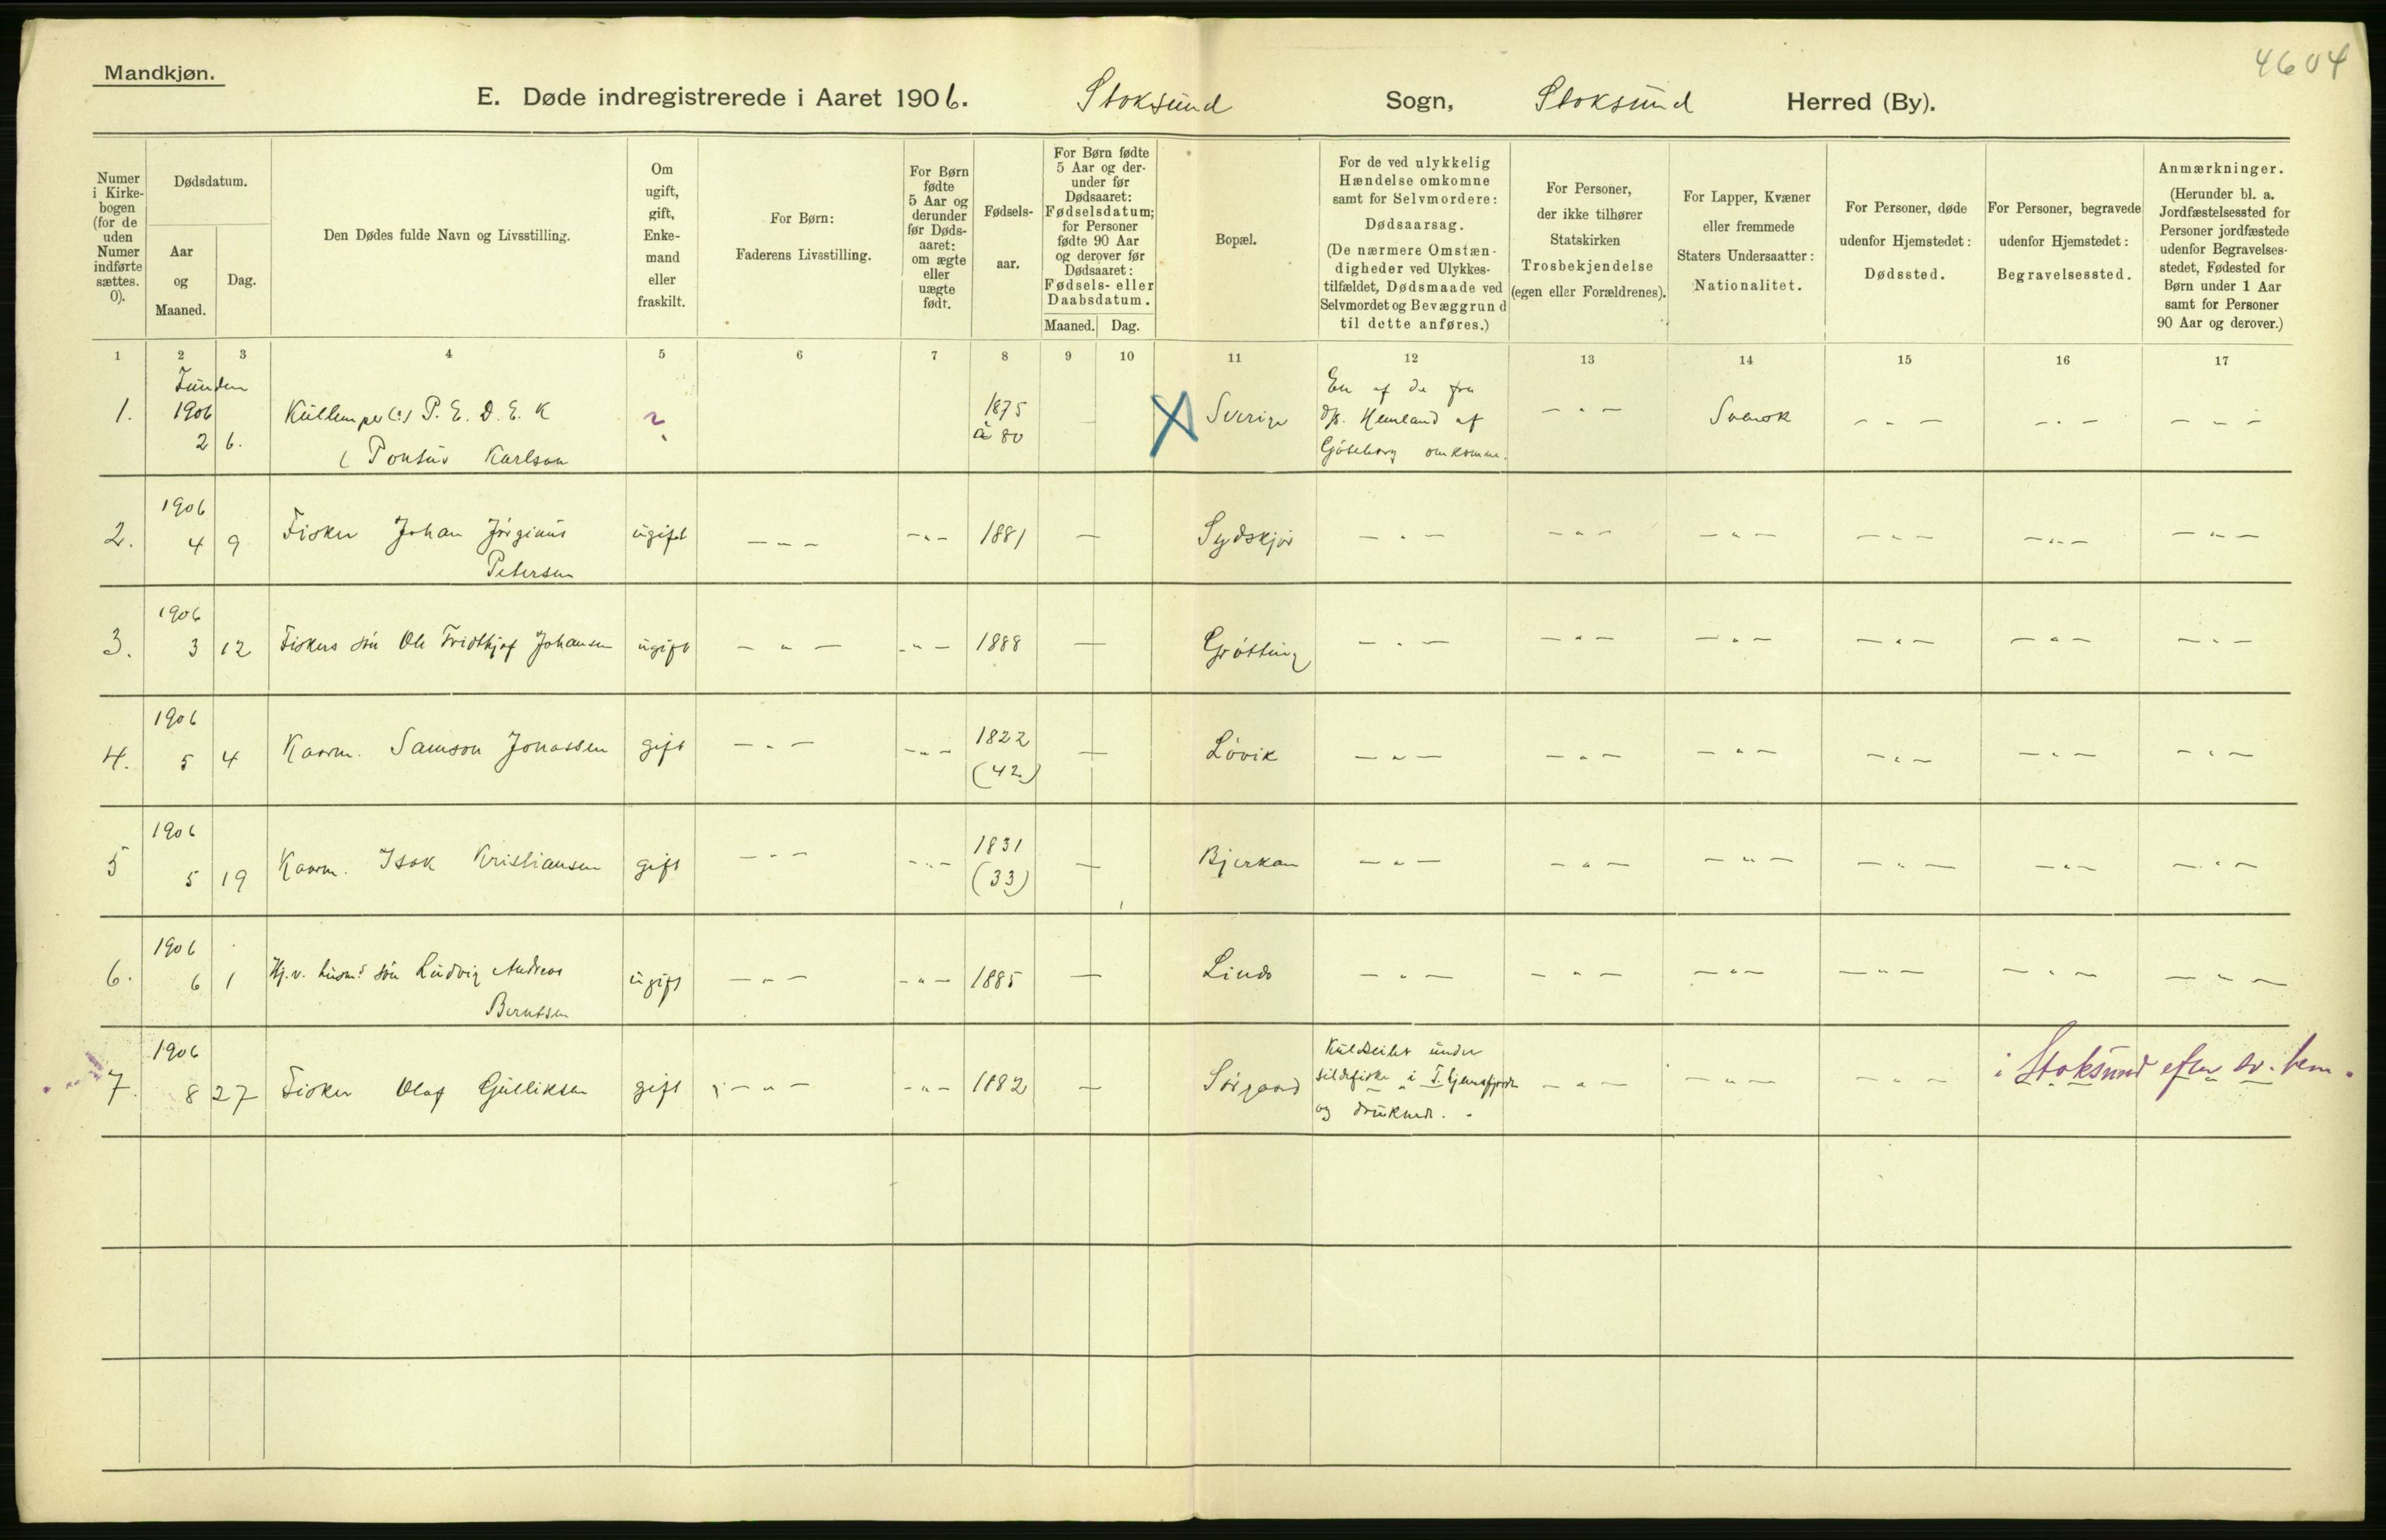 4604
Mandkjøn.
E. Døde indregistrerede i Aaret 1906. Stoksund Sogn, Stoksund Herred (By).
Numer i Kirkebogen (for de uden Numer indførte sættes. 0).
Dødsdatum.
Aar og Maaned.
Dag.
Den Dødes fulde Navn og Livsstilling.
Om ugift, gift, Enkemand eller fraskilt.
For Børn: Faderens Livsstilling.
For Børn fødte 5 Aar og derunder før Dødsaaret: om ægte eller uægte født.
Fødselsaar.
For Børn fødte 5 Aar og derunder før Dødsaaret: Fødselsdatum; for Personer fødte 90 Aar og derover før Dødsaaret: Fødsels- eller Daabsdatum.
Maaned. Dag.
Bopæl.
For de ved ulykkelig Hændelse omkomne samt for Selvmordere: Dødsaarsag. (De nærmere Omstændigheder ved Ulykkestilfældet, Dødsmaade ved Selvmordet og Bevæggrund til dette anføres.)
For Personer, der ikke tilhører Statskirken Trosbekjendelse (egen eller Forældrenes).
For Lapper, Kvæner eller fremmede Staters Undersaatter: Nationalitet.
For Personer, døde udenfor Hjemstedet: Dødssted.
For Personer, begravede udenfor Hjemstedet: Begravelsessted.
Anmærkninger. (Herunder bl. a. Jordfæstelsessted for Personer jordfæstede udenfor Begravelsesstedet, Fødested for Børn under 1 Aar samt for Personer 90 Aar og derover.)
1 2 3 4 5 6 7 8 9 10 11 12 13 14 15 16 17
Funden
1. 1906 2 6. Kullemper (?) P. E. D. E. K ? 1875 à 80 Sverige En af de fra Svensk
( Pontus Karlson
D/s. Hemland af
Gøteborg omkomne.
2. 1906 4 9 Fisker Johan Jørginus Petersen ugift 1881 Sydskjør
3. 1906 3 12 Fiskers søn Ole Fridthjof Johansen ugift 1888 Grøtting
4. 1906 5 4 Kaarm. Samson Jonassen gift 1822 (42) Løvik
5 1906 5 19 Kaarm. Isak Kristiansen gift 1831 (33) Bjerkan
6. 1906 6 1 Hj.v. husm.s søn Ludvig Andreas Berntsen ugift 1885 Lindø
7. 1906 8 27 Fisker Olaf Gulliksen gift 1882 Sørgaard Kuldseilet under
sildefiske i
og druknede.
i Stoksund efter sv. hem.